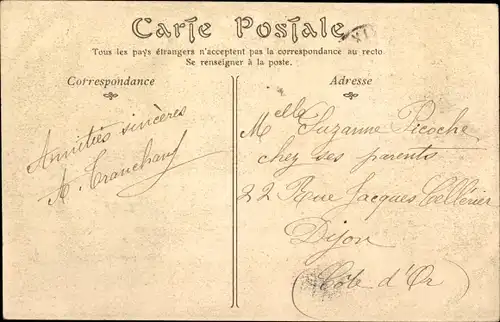 Carte Postale
Tous les pays étrangers n'acceptent pas la correspondance au recto.
Se renseigner à la poste.
Correspondance
Adresse
Amitiés sincères
A. Tranchant
Melle Suzanne Picoche
chez ses parents
22 Rue Jacques Cellerier
Dijon
(Côte d'Or)